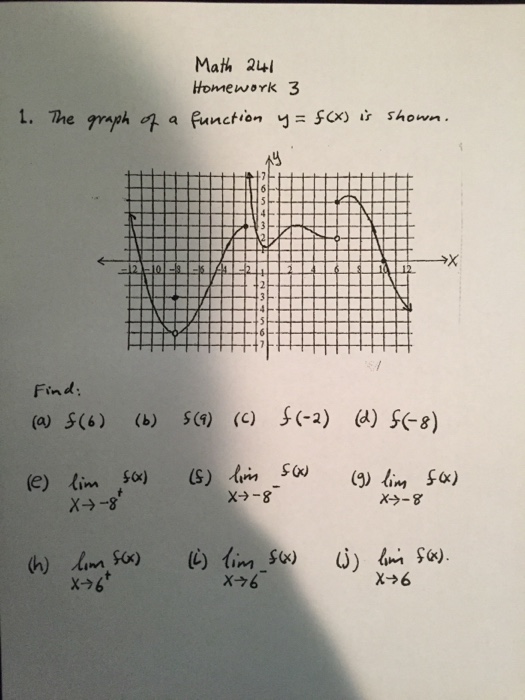 Math 241
Homework 3
1. The graph of a function y = f(x) is shown.
y
7
6
5
4
3
2
x
-12 -10 -8 -6 -4 -2 1 2 4 6 8 10 12
2
3
4
5
6
7
Find:
(a) f(6) (b) f(9) (c) f(-2) (d) f(-8)
(e) lim f(x) (f) lim f(x) (g) lim f(x)
x→-8⁺ x→-8⁻ x→-8
(h) lim f(x) (i) lim f(x) (j) lim f(x).
x→6⁺ x→6⁻ x→6